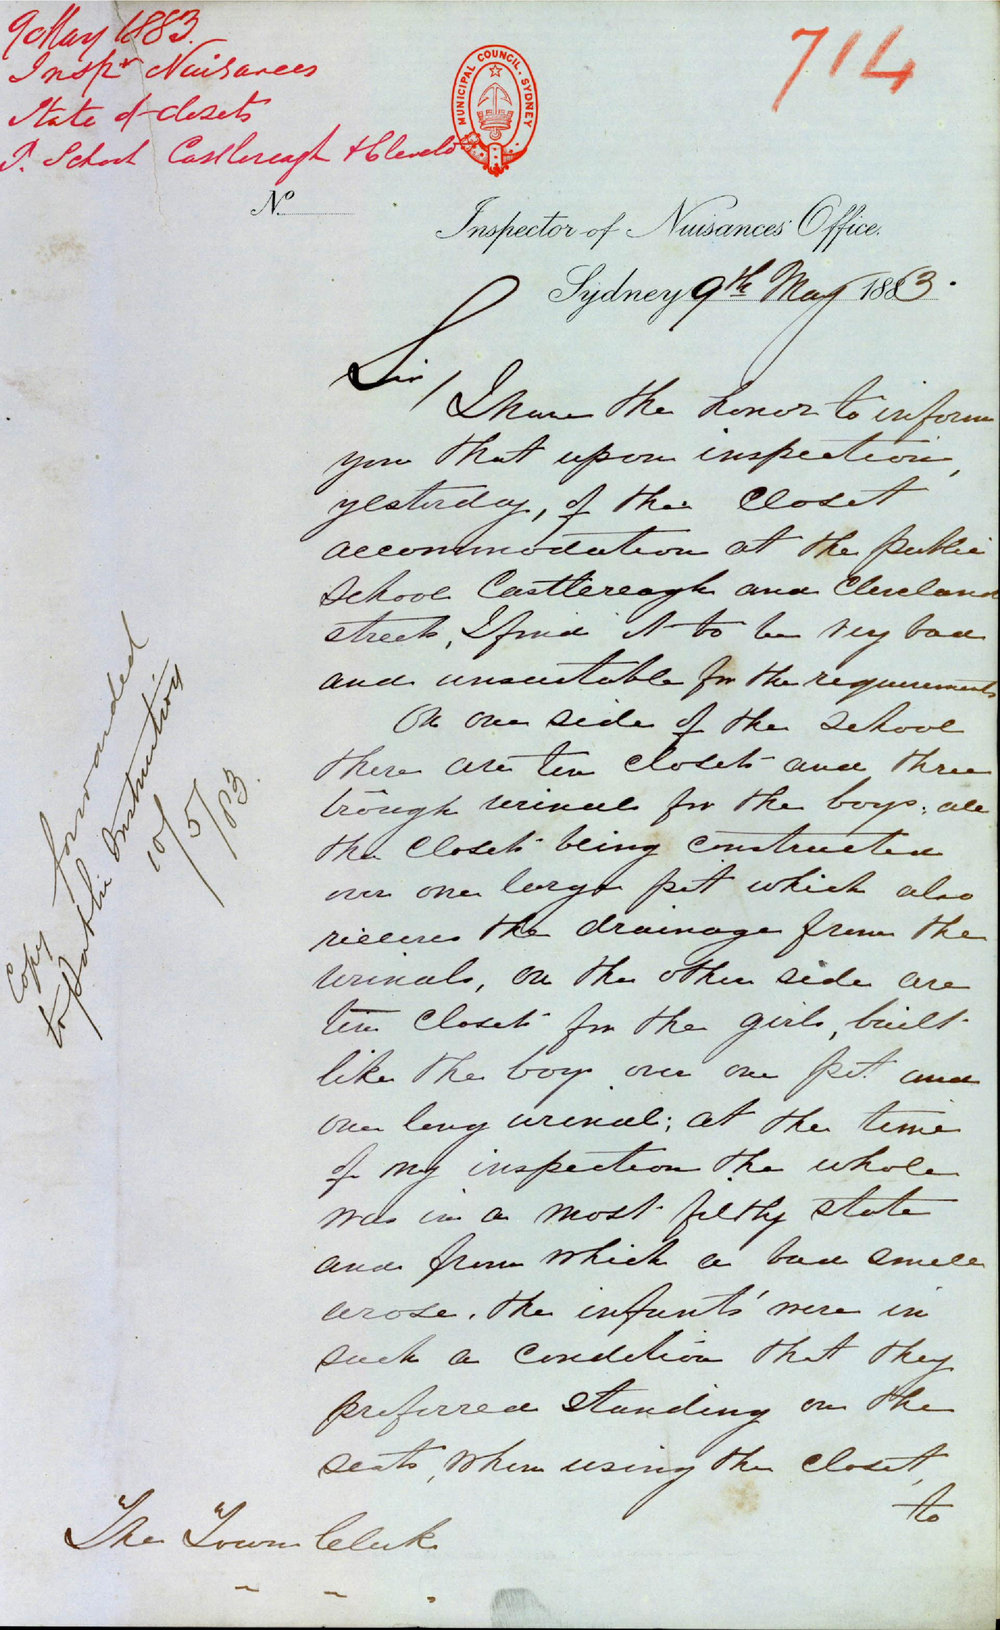 9 May 1883.
Inspr Nuisances
State of closets
P. School Castlereagh & Cleveld
714
MUNICIPAL COUNCIL. SYDNEY
No
Inspector of Nuisances' Office.
Sydney 9th May 1883.
Sir/
I have the honor to inform
you that upon inspection,
yesterday, of the closet
accommodation at the public
school Castlereagh and Cleveland
streets, I find it to be very bad
and unsuitable for the requirements
On one side of the school
there are ten closets and three
trough urinals for the boys; all
the closets being constructed
over one large pit which also
receives the drainage from the
urinals, on the other side are
ten closets for the girls, built
like the boys over one pit and
one long urinal; at the time
of my inspection the whole
was in a most filthy state
and from which a bad smell
arose. the infants' were in
such a condition that they
preferred standing on the
seats, when using the closet,
to
The Town Clerk
Copy forwarded
to Public Instruction
10/5/83.